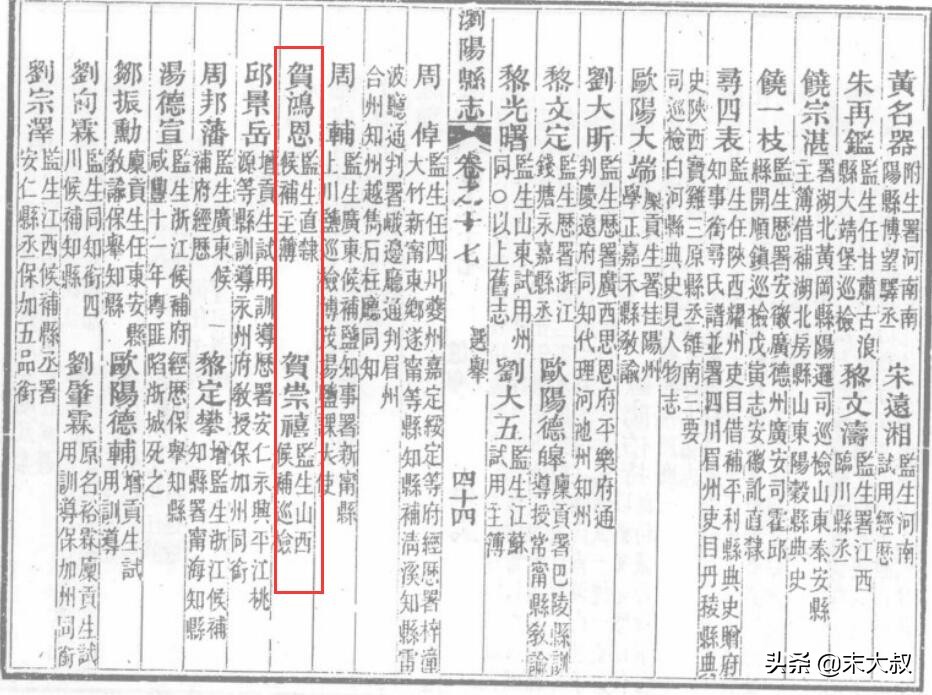 黃名器
附生署河南南
陽縣博望驛丞
宋遠湘
監生河南
試用經歷
朱再鑑
監生任甘肅古浪
縣大靖堡巡檢
黎文濤
監生署江西
臨川縣丞
饒宗湛
署湖北黃岡縣陽邏司巡檢山東泰安縣
主簿借補湖北房縣山東陽穀縣典史
饒一枝
監生歷署安徽廣德縣廣安司霍邱
縣開順鎮巡檢戊寅志安徽訛直隸
尋四表
監生任陝西耀州吏目借補平利縣典史 府
知事銜尋氏譜並署四川眉州吏目丹陵縣典
史陝西寶雞三原縣丞雒南三要
司巡檢白河縣典史見人物志
歐陽大端
廩貢生署桂陽州
學正嘉禾縣教諭
劉大昕
監生歷署廣西思恩府平樂府通
判慶遠府同知代理河池州知州
黎文定
監生歷署浙江
錢塘永嘉縣丞
歐陽德皞
廩貢署巴陵縣訓
導授常甯縣教諭
黎光曙
監生山東試用州
同○以上舊志
劉大五
監生江蘇
試用主簿
瀏陽縣志 卷之十七 選舉 四十四
周倬
監生任四川夔州嘉定綏定等府經歷署梓潼
大竹新甯東鄉遂甯等縣知縣補清溪知縣雷
波廳通判署峨邊廳通判眉州
合州知州越嶲石砫廳同知
周輔
監生廣東候補鹽知事署新甯縣
上川 巡檢博茂場鹽課大使
賀鴻恩
監生直隸
候補主薄
賀崇禧
監生山西
候補巡檢
邱景岳
增貢生試用訓導歷署安仁永興平江桃
源等縣訓導永州府教授保加州同銜
周邦藩
監生廣東候
補府經歷
黎定攀
增監生浙江候補
知縣署甯海知縣
湯德宣
監生浙江候補府經歷保舉知縣
咸豐十一年粵匪陷浙城死之
鄒振勳
廩貢生任東安縣
教諭保舉知縣
歐陽德輔
增貢生試
用訓導
劉向霖
監生同知銜四
川候補知縣
劉肇霖
原名裕霖廩貢生試
用訓導保加州同銜
劉宗澤
監生江西候補縣丞署
安仁縣丞保加五品銜
头条 @末大叔